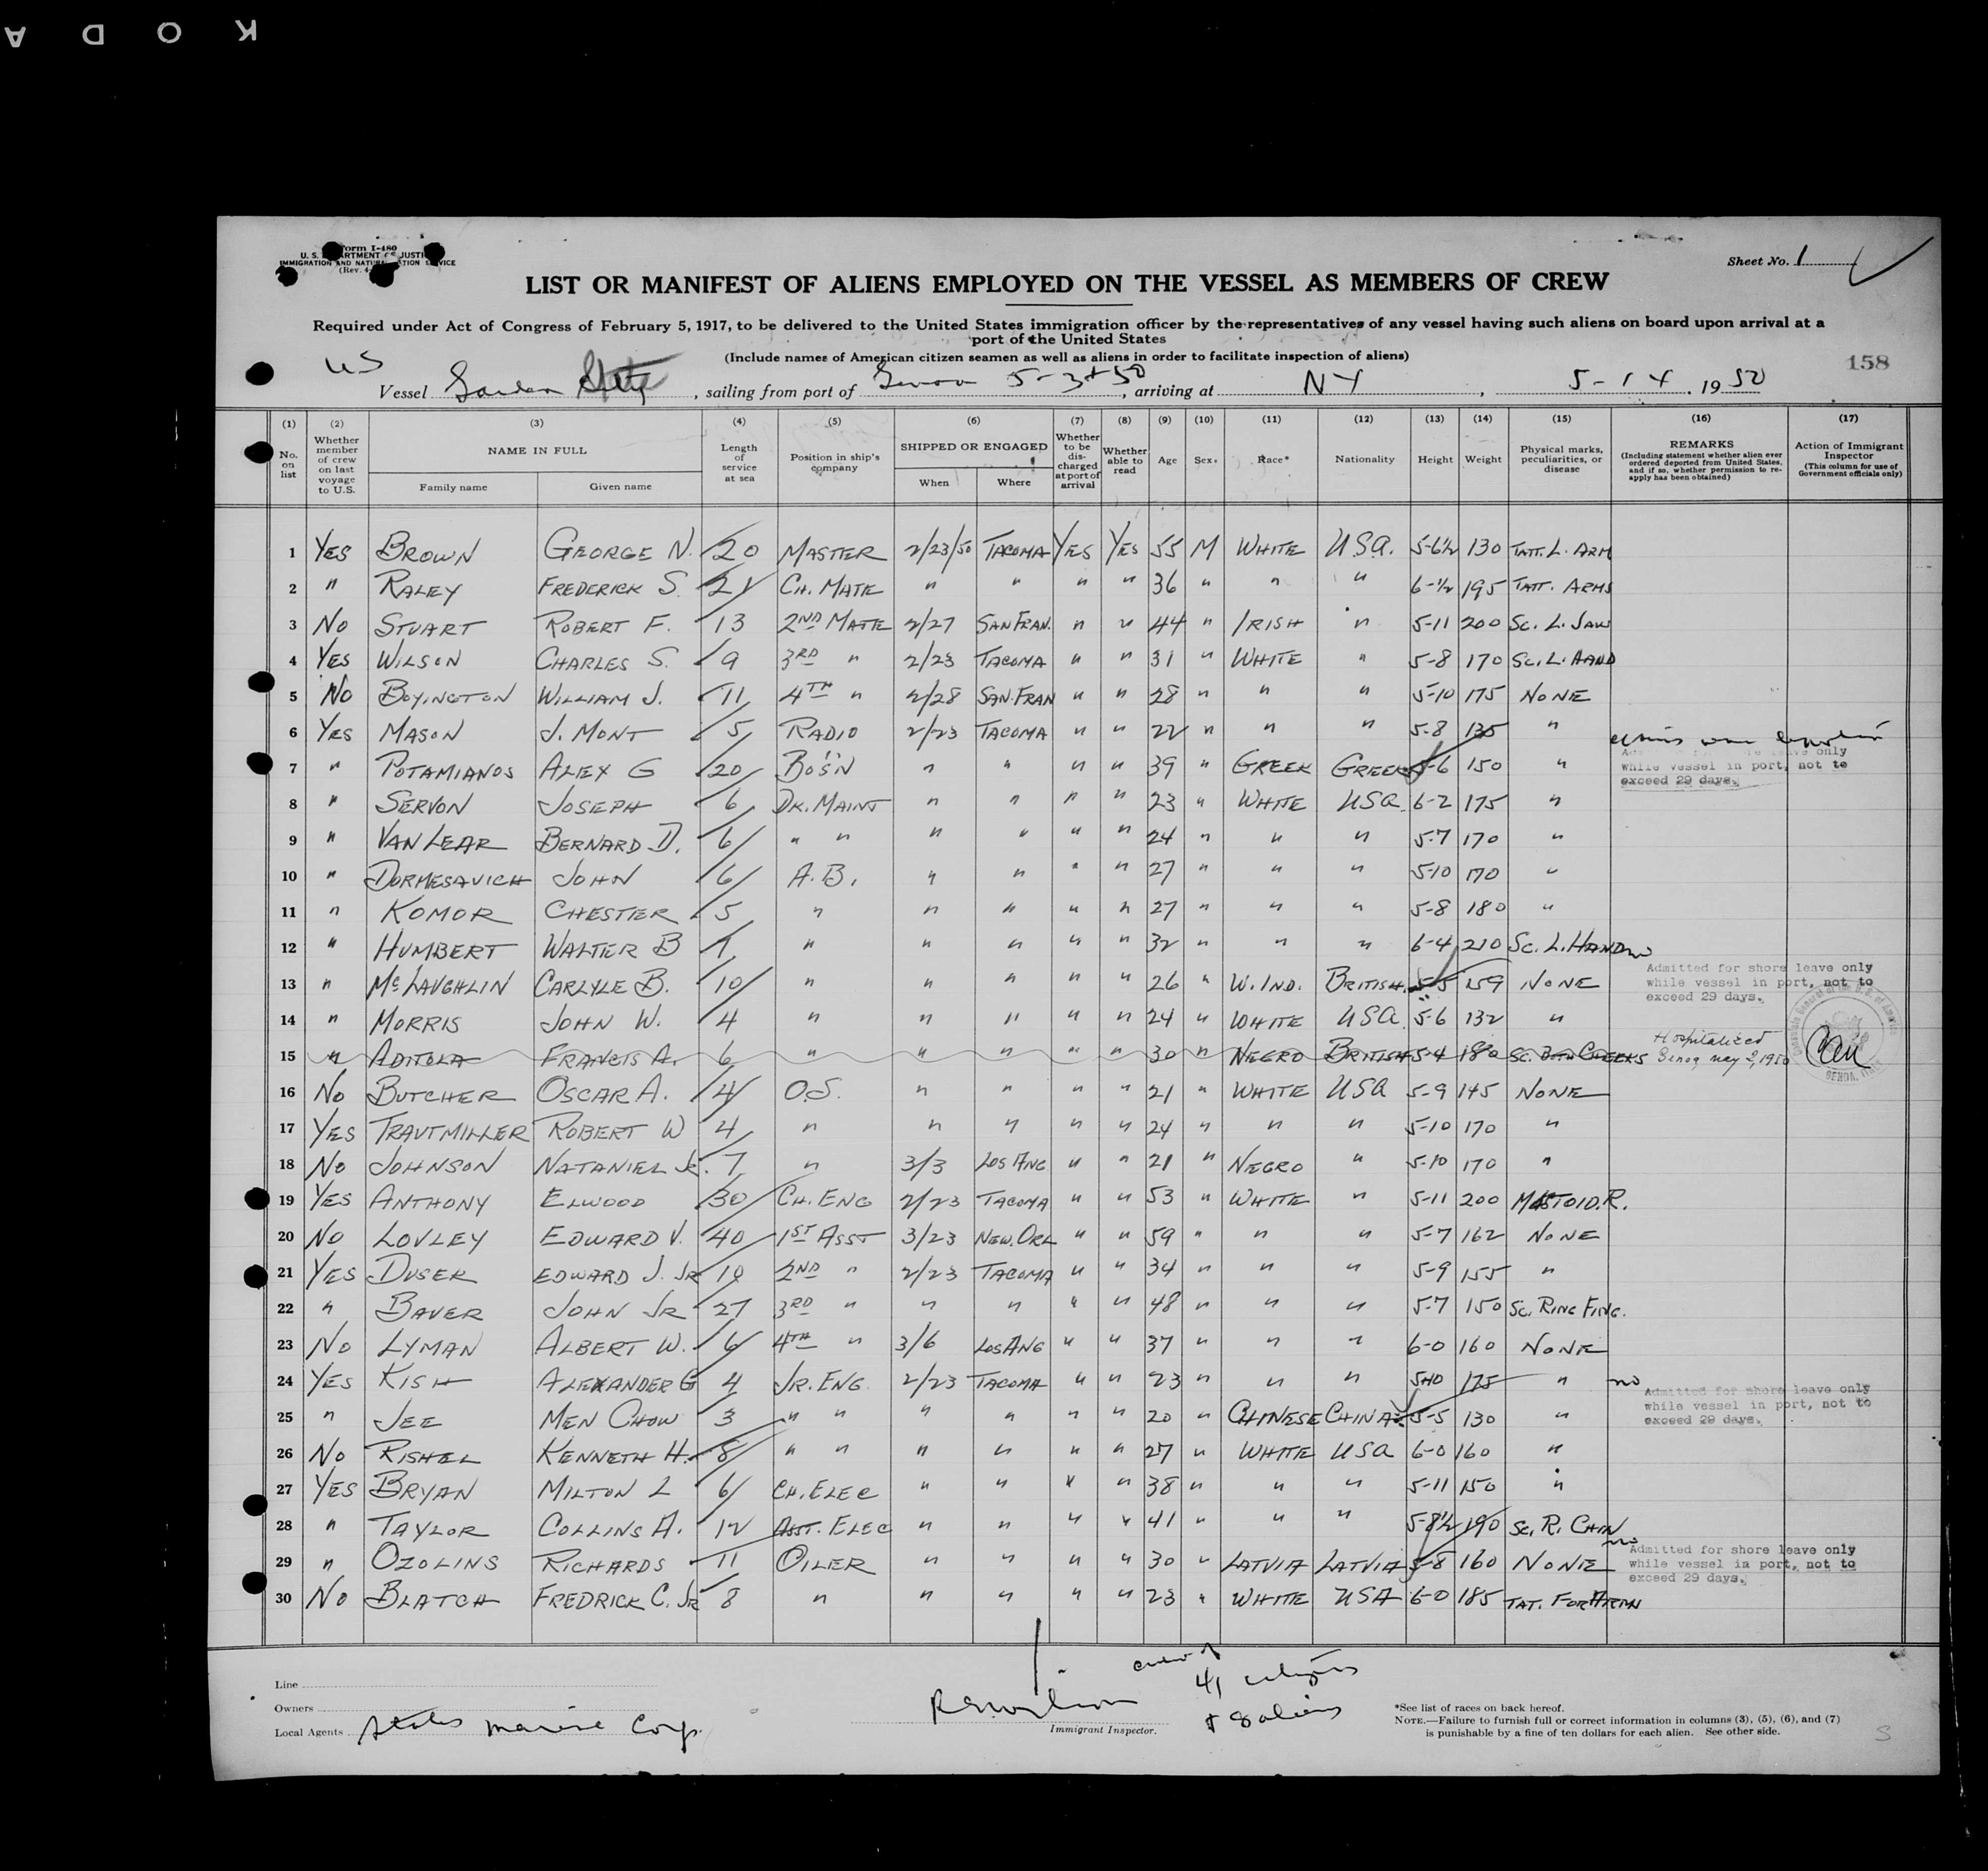 K O D A
Form I-480
U. S. DEPARTMENT OF JUSTICE
IMMIGRATION AND NATURALIZATION SERVICE
(Rev. 4-
Sheet No. 1
LIST OR MANIFEST OF ALIENS EMPLOYED ON THE VESSEL AS MEMBERS OF CREW
Required under Act of Congress of February 5, 1917, to be delivered to the United States immigration officer by the representatives of any vessel having such aliens on board upon arrival at a
port of the United States
(Include names of American citizen seamen as well as aliens in order to facilitate inspection of aliens)
158
US
Vessel Garden State, sailing from port of Genoa 5-3-50, arriving at NY, 5-14, 1950
(1) No. on list
(2) Whether member of crew on last voyage to U.S.
(3) NAME IN FULL Family name Given name
(4) Length of service at sea
(5) Position in ship's company
(6) SHIPPED OR ENGAGED When Where
(7) Whether to be discharged at port of arrival
(8) Whether able to read
(9) Age
(10) Sex
(11) Race*
(12) Nationality
(13) Height
(14) Weight
(15) Physical marks, peculiarities, or disease
(16) REMARKS (Including statement whether alien ever ordered deported from United States, and if so, whether permission to reapply has been obtained)
(17) Action of Immigrant Inspector (This column for use of Government officials only)
1 YES BROWN GEORGE N. 20 MASTER 2/23/50 TACOMA YES YES 55 M WHITE USA. 5-6½ 130 TATT. L. ARM
2 " RALEY FREDERICK S. 21 CH. MATE " " " " 36 " " " 6-½ 195 TATT. ARMS
3 NO STUART ROBERT F. 13 2ND MATE 2/27 SAN FRAN. " " 44 " IRISH " 5-11 200 SC. L. JAW
4 YES WILSON CHARLES S. 9 3RD " 2/23 TACOMA " " 31 " WHITE " 5-8 170 SC. L. HAND
5 NO BOYINGTON WILLIAM J. 11 4TH " 2/28 SAN. FRAN " " 28 " " " 5-10 175 NONE
6 YES MASON J. MONT 5 RADIO 2/23 TACOMA " " 22 " " " 5-8 135 "
7 " POTAMIANOS ALEX G 20 BOS'N " " " " 39 " GREEK GREEK 5-6 150 "
Admitted for shore leave only
while vessel in port, not to
exceed 29 days.
8 " SERVON JOSEPH 6 DK. MAINT " " " " 23 " WHITE USA. 6-2 175 "
9 " VAN LEAR BERNARD D. 6 " " " " " " 24 " " " 5-7 170 "
10 " DORMESAVICH JOHN 6 A.B. " " " " 27 " " " 5-10 170 "
11 " KOMOR CHESTER 5 " " " " " 27 " " " 5-8 180 "
12 " HUMBERT WALTER B 7 " " " " " 32 " " " 6-4 210 SC. L. HAND
no
13 " McLAUGHLIN CARLYLE B. 10 " " " " " 26 " W. IND. BRITISH 5-5 159 NONE
Admitted for shore leave only
while vessel in port, not to
exceed 29 days.
14 " MORRIS JOHN W. 4 " " " " " 24 " WHITE USA 5-6 132 "
15 " ADITOLA FRANCIS A. 6 " " " " " 30 " NEGRO BRITISH 5-4 180 SC. CHEEKS
Hospitalized
Genoa May 2, 1950
GENOA, ITALY
16 NO BUTCHER OSCAR A. 4 O.S. " " " " 21 " WHITE USA 5-9 145 NONE
17 YES TRAUTMILLER ROBERT W 4 " " " " " 24 " " " 5-10 170 "
18 NO JOHNSON NATANIEL Jr. 7 " 3/3 LOS ANG " " 21 " NEGRO " 5-10 170 "
19 YES ANTHONY ELWOOD 30 CH. ENG 2/23 TACOMA " " 53 " WHITE " 5-11 200 MASTOID. R.
20 NO LOVLEY EDWARD V. 40 1ST ASST 3/23 NEW. ORL " " 59 " " " 5-7 162 NONE
21 YES DUSEK EDWARD J. JR 10 2ND " 2/23 TACOMA " " 34 " " " 5-9 155 "
22 " BAUER JOHN JR 27 3RD " " " " " 48 " " " 5-7 150 SC. RING FING.
23 NO LYMAN ALBERT W. 6 4TH " 3/6 LOS ANG " " 37 " " " 6-0 160 NONE
24 YES KISH ALEXANDER G 4 JR. ENG. 2/23 TACOMA " " 23 " " " 5-10 175 "
no
25 " JEE MEN CHOW 3 " " " " " " 20 " CHINESE CHINA 5-5 130 "
Admitted for shore leave only
while vessel in port, not to
exceed 29 days.
26 NO RISHEL KENNETH H. 8 " " " " " " 27 " WHITE USA 6-0 160 "
27 YES BRYAN MILTON L 6 CH. ELEC " " " " 38 " " " 5-11 150 "
28 " TAYLOR COLLINS A. 12 ASST. ELEC " " " " 41 " " " 5-8½ 190 SC. R. CHIN
no
29 " OZOLINS RICHARDS 11 OILER " " " " 30 " LATVIA LATVIA 5-8 160 NONE
Admitted for shore leave only
while vessel in port, not to
exceed 29 days.
30 NO BLATCH FREDRICK C. JR 8 " " " " " 23 " WHITE USA 6-0 185 TAT. FORARM
Line
Owners
Local Agents States Marine Corp.
Immigrant Inspector.
crew of
41 citizens
+ 8 aliens
*See list of races on back hereof.
NOTE.—Failure to furnish full or correct information in columns (3), (5), (6), and (7)
is punishable by a fine of ten dollars for each alien. See other side.